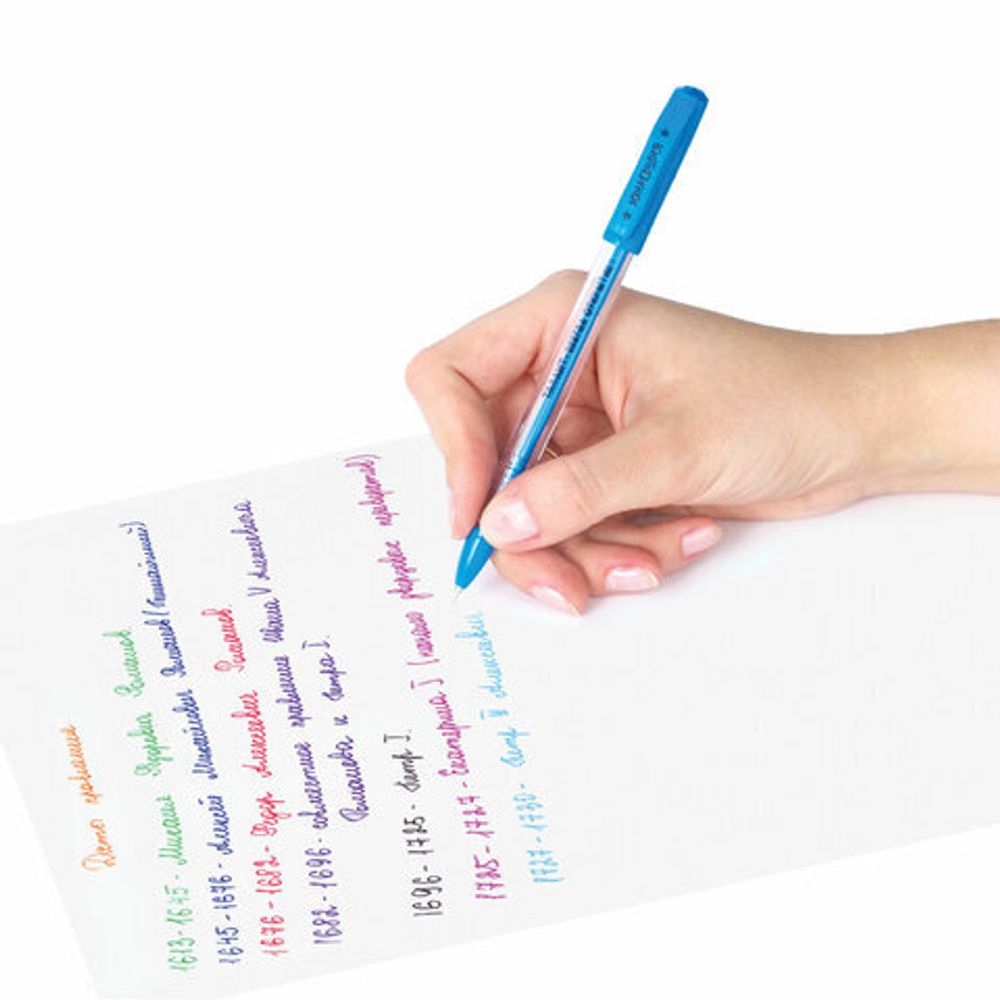 Дата правления
1613-1645 - Михаил Фёдорович Романов
1645-1676 - Алексей Михайлович Романов (Тишайший)
1676-1682 - Фёдор Алексеевич Романов
1682-1696 - совместное правление Ивана V Алексеевича
Романова и Петра I.
1696-1725 - Петр I.
1725-1727 - Екатерина I (начало дворцовых переворотов)
1727-1730 - Петр II Алексеевич
★ ЮНЛАНДИЯ ★